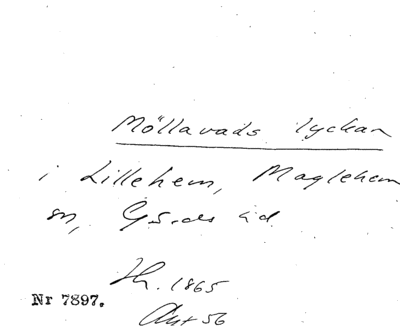 Möllavads lyckan
i Lillehem, Maglehem
sn, Gärds hd
Hz. 1865
Nr 7897.
Akt 56